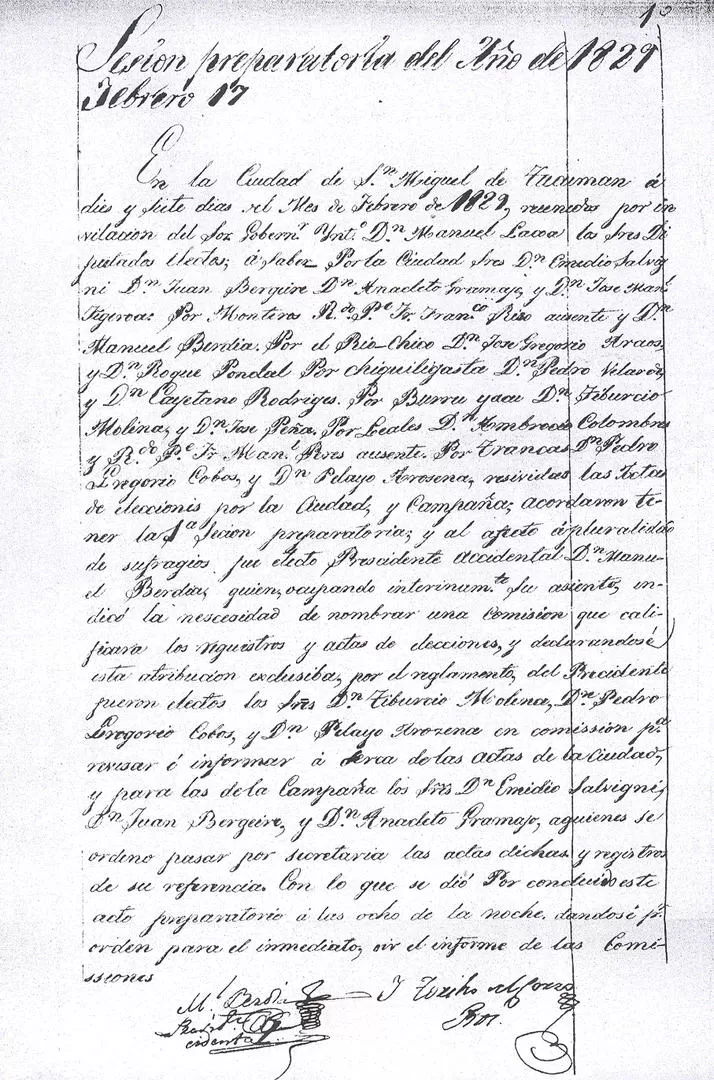 1º
Sesion preparatoria del Año de 1829
Febrero 17
En la Ciudad de S.n Miguel de Tucuman á
dies y siete dias del Mes de Febrero de 1829, reunidos por in
vitacion del Sor Gobern.r Ynt.o D.n Manuel Lacoa los Sres Di
putados electos; á saber Por la Ciudad Sres D.n Emedio Salvig
ni D.n Juan Bergeire D.n Anacleto Gramajo, y D.n Jose Man.l
Figeroa: Por Monteros R.do P.e Fr. Fran.co Riso ausente y D.n
Manuel Berdia. Por el Rio-Chico D.n Jose Gregorio Araos,
y D.n Roque Pondal Por chiquiligasta D.n Pedro
y D.n Cayetano Rodriges. Por Burru yacu D.n Tiburcio
Molina, y D.n Jose Peña. Por Leales D.n Ambrocio Colombres
y R.do P.e Fr Man.l Peres ausente. Por Trancas D.n Pedro
Gregorio Cobos, y D.n Pelayo Arosena, resividas las Actas
de elecciones por la Ciudad, y Campaña; acordaron te-
ner la 1a secion preparatoria; y al afecto á pluralidad
de sufragios fue electo Precidente accidental D.n Manu-
el Berdia, quien, ocupando interinam.te su asiento, in-
dicó la nescesidad de nombrar una comision que cali-
ficara los reguistros y actas de elecciones, y declarandosé
esta atribucion exclusiba, por el reglamento, del Precidente
fueron electos los Srēs D.n Tiburcio Molina, D.n Pedro
Gregorio Cobos, y D.n Pelayo Arozena en comission p.a
revisar é informar á derca de las actas de la Ciudad,
y para las de la Campaña los Srēs D.n Emidio Salvigni,
D.n Juan Bergeire, y D.n Anacleto Gramajo, aguienes se
ordeno pasar por secretaria las actas dichas y registros
de su referencia. Con lo que se dió Por concluido este
acto preparatorio á las ocho de la noche, dandosé p.r
orden para el inmediato, oir el informe de las Comi-
ssiones
M.l Berdia